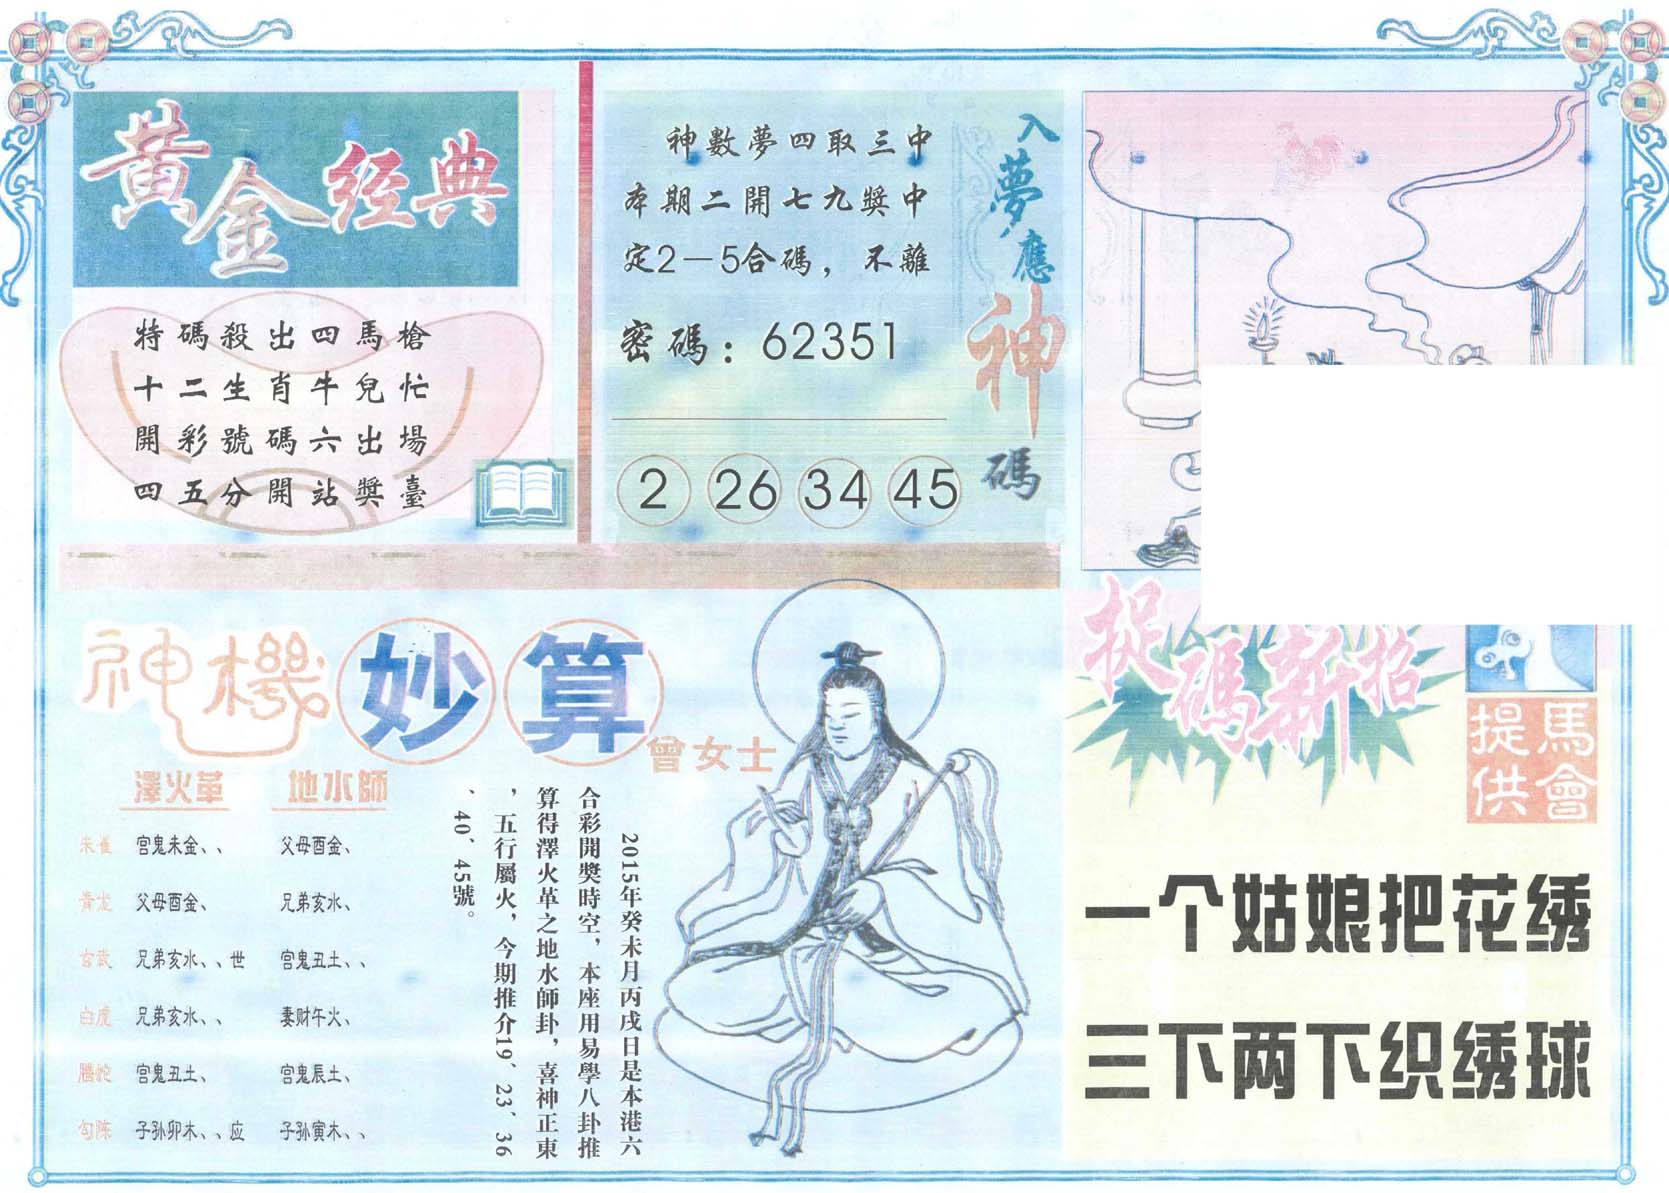 黃金经典
特碼殺出四馬槍
十二生肖牛兒忙
開彩號碼六出場
四五分開站獎臺
入夢應神碼
神數夢四取三中
本期二開七九獎中
定2—5合碼，不離
密碼：62351
2 26 34 45
神機妙算
曾女士
澤火革 地水師
朱雀 官鬼未金、、 父母酉金、
青龙 父母酉金、 兄弟亥水、
玄武 兄弟亥水、、世 官鬼丑土、、
白虎 兄弟亥水、、 妻财午火、
腾蛇 官鬼丑土、 官鬼辰土、
勾陈 子孙卯木、、应 子孙寅木、、
2015年癸未月丙戌日是本港六
合彩開獎時空，本座用易學八卦推
算得澤火革之地水師卦，喜神正東
，五行屬火，今期推介19、23、36
、40、45號。
捉碼新招
馬會
提供
一个姑娘把花绣
三下两下织绣球